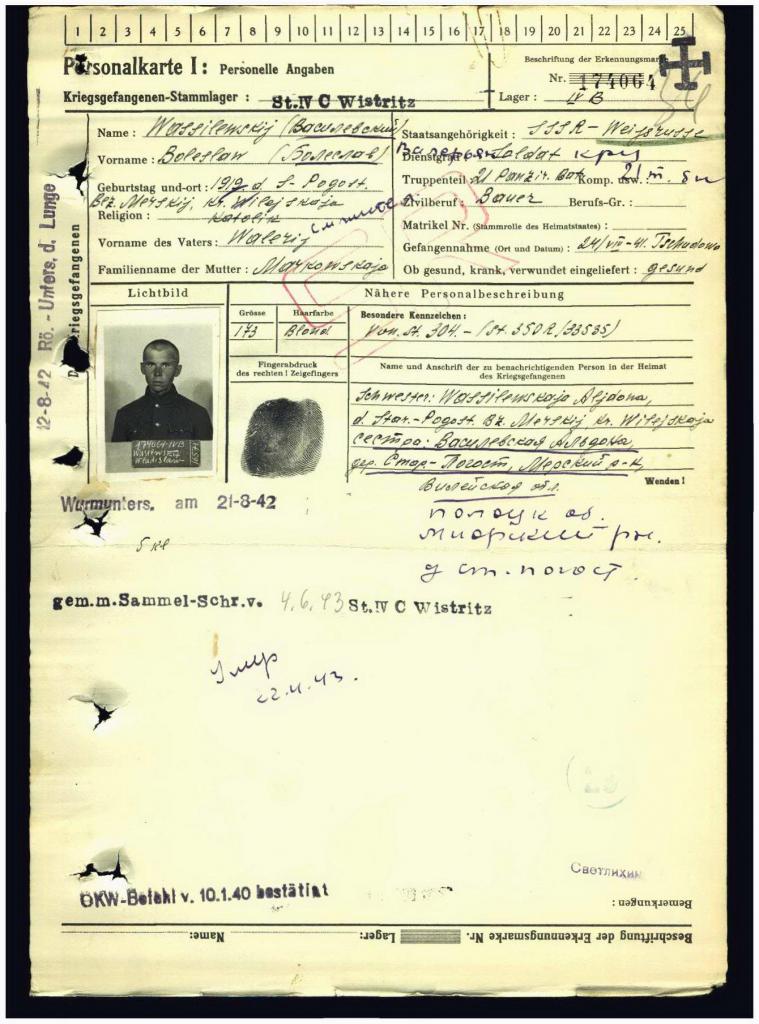 1 2 3 4 5 6 7 8 9 10 11 12 13 14 15 16 17 18 19 20 21 22 23 24 25
Personalkarte I: Personelle Angaben
Beschriftung der Erkennungsmarke
Nr. 174064
Kriegsgefangenen-Stammlager: St.IV C Wistritz
Lager: IV B
Name: Wassilewskij (Василевский)
Staatsangehörigkeit: SSSR - Weißrusse
Vorname: Boleslaw (Болеслав)
Dienstgrad: Soldat
Geburtstag und -ort: 1919. d. S-Pogost.
Truppenteil: 21 Panzir. Bat. Komp. usw.:
Bez. Merskij, Kr. Wilejskaja
Zivilberuf: Bauer Berufs-Gr.:
Religion: Katolik
Matrikel Nr. (Stammrolle des Heimatstaates):
Vorname des Vaters: Walerij
Gefangennahme (Ort und Datum): 24/VIII-41. Tschudowo
Familienname der Mutter: Markowskaja
Ob gesund, krank, verwundet eingeliefert: gesund
12-8-42 Rö. - Unters. d. Lunge
Des Kriegsgefangenen
Lichtbild
Nähere Personalbeschreibung
Grösse Haarfarbe
Besondere Kennzeichen:
173 Blond
Von. St. 304. - (St. 350 R/33535)
Fingerabdruck
des rechten! Zeigefingers
Name und Anschrift der zu benachrichtigenden Person in der Heimat
des Kriegsgefangenen
Schwester: Wassilewskaja Aljdona,
d. Star.-Pogost. Bz. Merskij Kr. Wilejskaja
сестра: Василевская Альдона,
дер. Стар-Погост, Мерский р-н,
Вилейская обл.
Wenden!
174064 IVB
Wladislaw
Wurmunters. am 21-8-42
полоцк об.
миорский рн.
д ст. погост.
5 кл
gem.m.Sammel-Schr.v. 4.6.43 St.IV C Wistritz
Умер
OKW-Befehl v. 10.1.40 bestätigt
Bemerkungen:
Beschriftung der Erkennungsmarke Nr. Lager: Name: